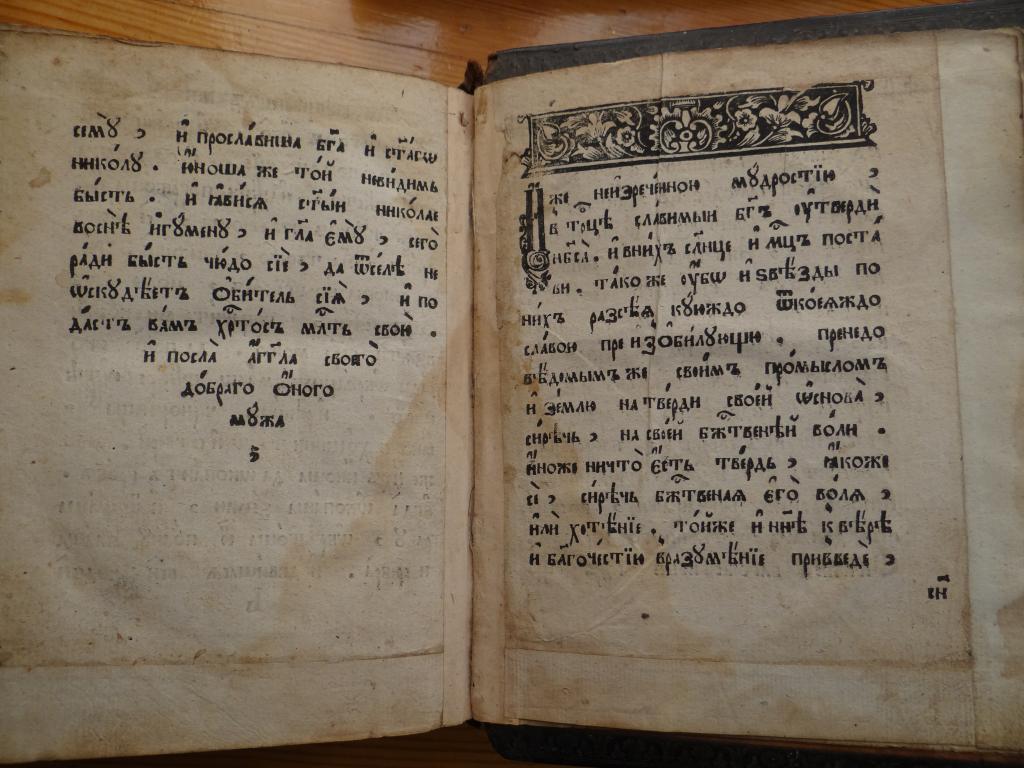 семꙋ̀, и҆ просла́виша бг҃а и҆ ст҃а́го
нико́лꙋ. ю҆́ноша же то́й неви́димъ
бы́сть. и҆ ꙗ҆ви́сѧ ст҃ы́и нико́лае
во снѣ̀ и҆гꙋ́менꙋ, и҆ гл҃а є҆мꙋ̀, сегѡ̀
ра́ди бы́сть чю́до сїѐ, да ѿсе́лѣ не
ѡ҆скꙋдѣ́етъ ѻ҆би́тель сїѧ̀, и҆ по
да́стъ ва́мъ хрⷭ҇то́съ млⷭ҇ть свою̀.
и҆ посла̀ а҆́гг҃ла своего̀
до́браго ѻ҆́ного
мꙋ́жа
И҆́же неи҆зрече́нною мꙋ́дростїю,
в трⷪ҇цѣ сла́вимыи бг҃ъ ѹ҆твердѝ
нб҃са̀. и҆ в ни́хъ сл҃нце и҆ мцⷭ҇ъ поста́
ви. та́коже ѹ҆́бѡ и҆ ѕвѣ́зды по
ни́хъ разсѣ́ѧ кꙋ́юждо ѿ коеѧ́ждо
сла́вою преи҆зѻби́лꙋющю. пренедо
вѣ́домымъ же свои́мъ про́мысломъ
и҆ зе́млю на тве́рди свое́й ѡ҆снова̀,
си́рѣчь, на свое́й бжⷭ҇твенѣй во́ли.
и҆но́же ничто̀ є҆́сть тве́рдь, ꙗ҆́коже
сѐ, си́рѣчь бжⷭ҇твеная є҆го̀ во́лѧ,
и҆лѝ хотѣ́нїе. то́йже и҆ нн҃ѣ к вѣ́рѣ
и҆ бл҃гоче́стїю вразꙋмѣ́нїе приведѐ,